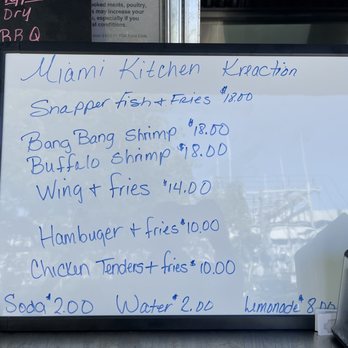 Dry
BBQ
ooked ments, poultry,
s may increase your
especially if you
al conditions.
Miami Kitchen Kreaction
Snapper fish + Fries $18.00
Bang Bang Shrimp $18.00
Buffalo Shrimp $18.00
Wing + fries $14.00
Hambuger + fries $10.00
Chicken Tenders + fries $10.00
Soda $2.00 Water $2.00 Limonade $8.00